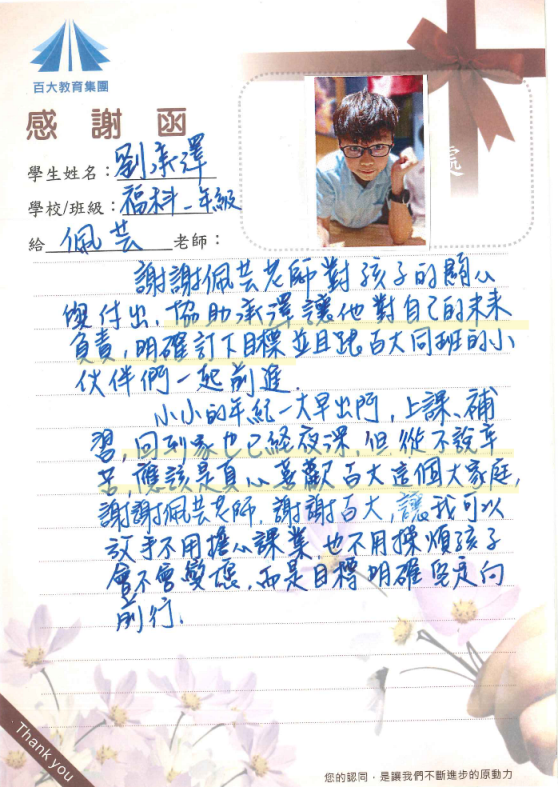 百大教育集團
感謝函
處
學生姓名：劉承澤
學校/班級：福科一年級
給 佩芸 老師：
謝謝佩芸老師對孩子的關心
與付出，協助承澤讓他對自己的未來
負責，明確訂下目標並且跟百大同班的小
伙伴們一起前進．
小小的年紀一大早出門，上課、補
習，回到家也已經夜深，但從不說辛
苦，應該是真心喜歡百大這個大家庭，
謝謝佩芸老師，謝謝百大，讓我可以
放手不用擔心課業，也不用操煩孩子
會不會變壞，而是目標明確堅定向
前行．
Thank you
您的認同，是讓我們不斷進步的原動力